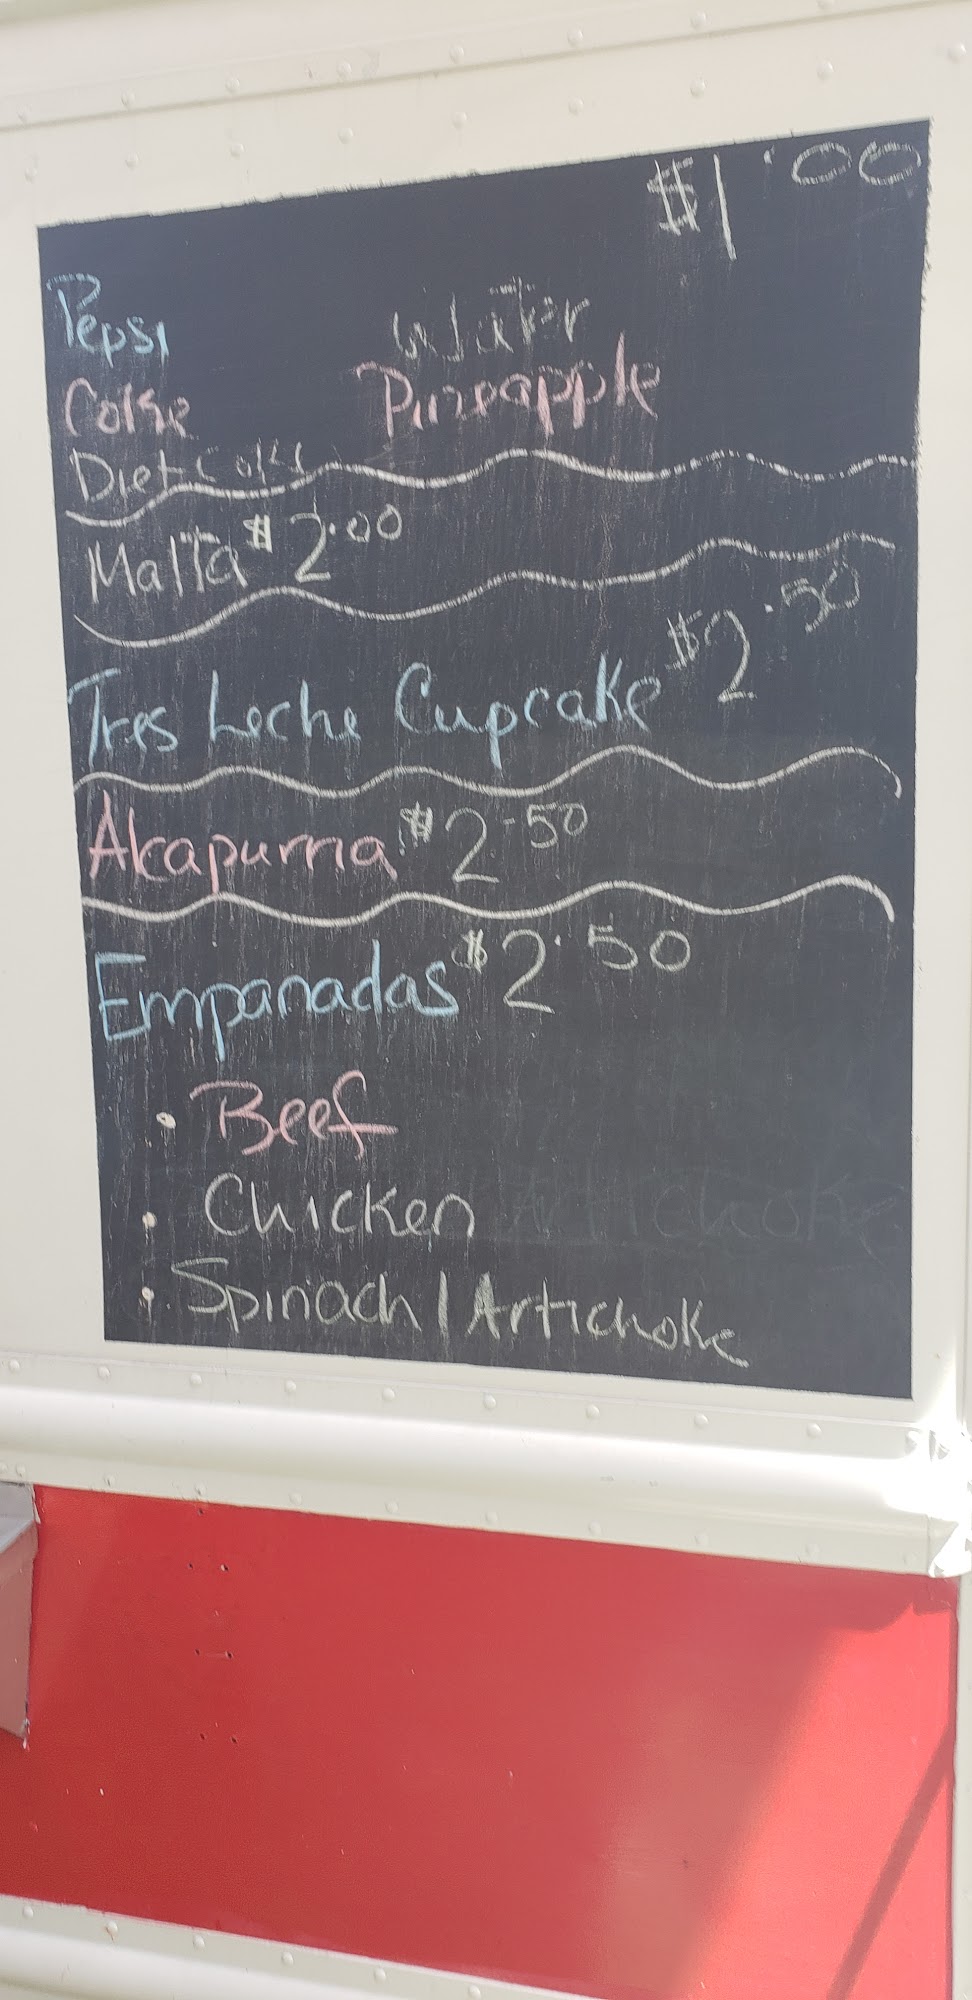 $1.00
Pepsi Water
Coke Pineapple
Diet Coke
Malta $2.00
Tres Leche Cupcake $2.50
Alcapurria $2.50
Empanadas $2.50
• Beef
• Chicken
• Spinach/Artichoke